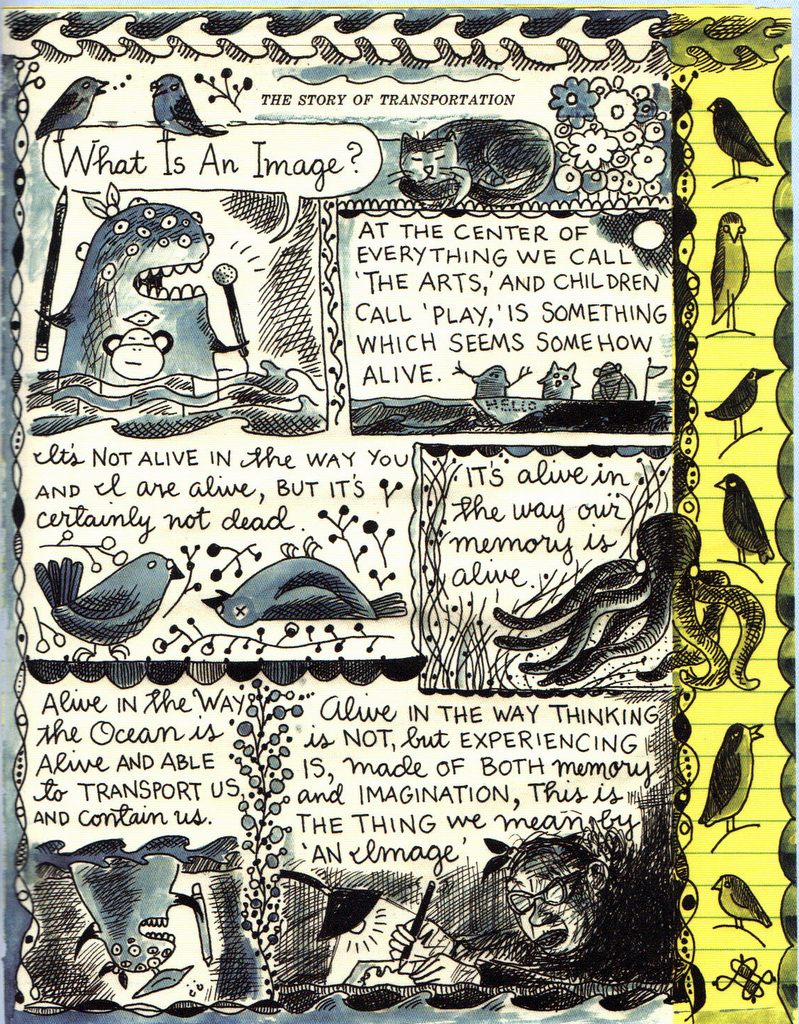 THE STORY OF TRANSPORTATION
What Is An Image?
AT THE CENTER OF
EVERYTHING WE CALL
'THE ARTS,' AND CHILDREN
CALL 'PLAY,' IS SOMETHING
WHICH SEEMS SOMEHOW
ALIVE.
HELLO
It's NOT ALIVE IN the WAY YOU
AND I are alive, BUT IT'S
certainly not dead.
IT'S alive in
the way our
memory is
alive.
Alive IN the WAY
the Ocean is
Alive AND ABLE
to TRANSPORT US
AND contain us.
Alive IN THE WAY THINKING
is NOT, but EXPERIENCING
IS, made OF BOTH memory
and IMAGINATION, This is
THE THING we mean by
'AN Image'